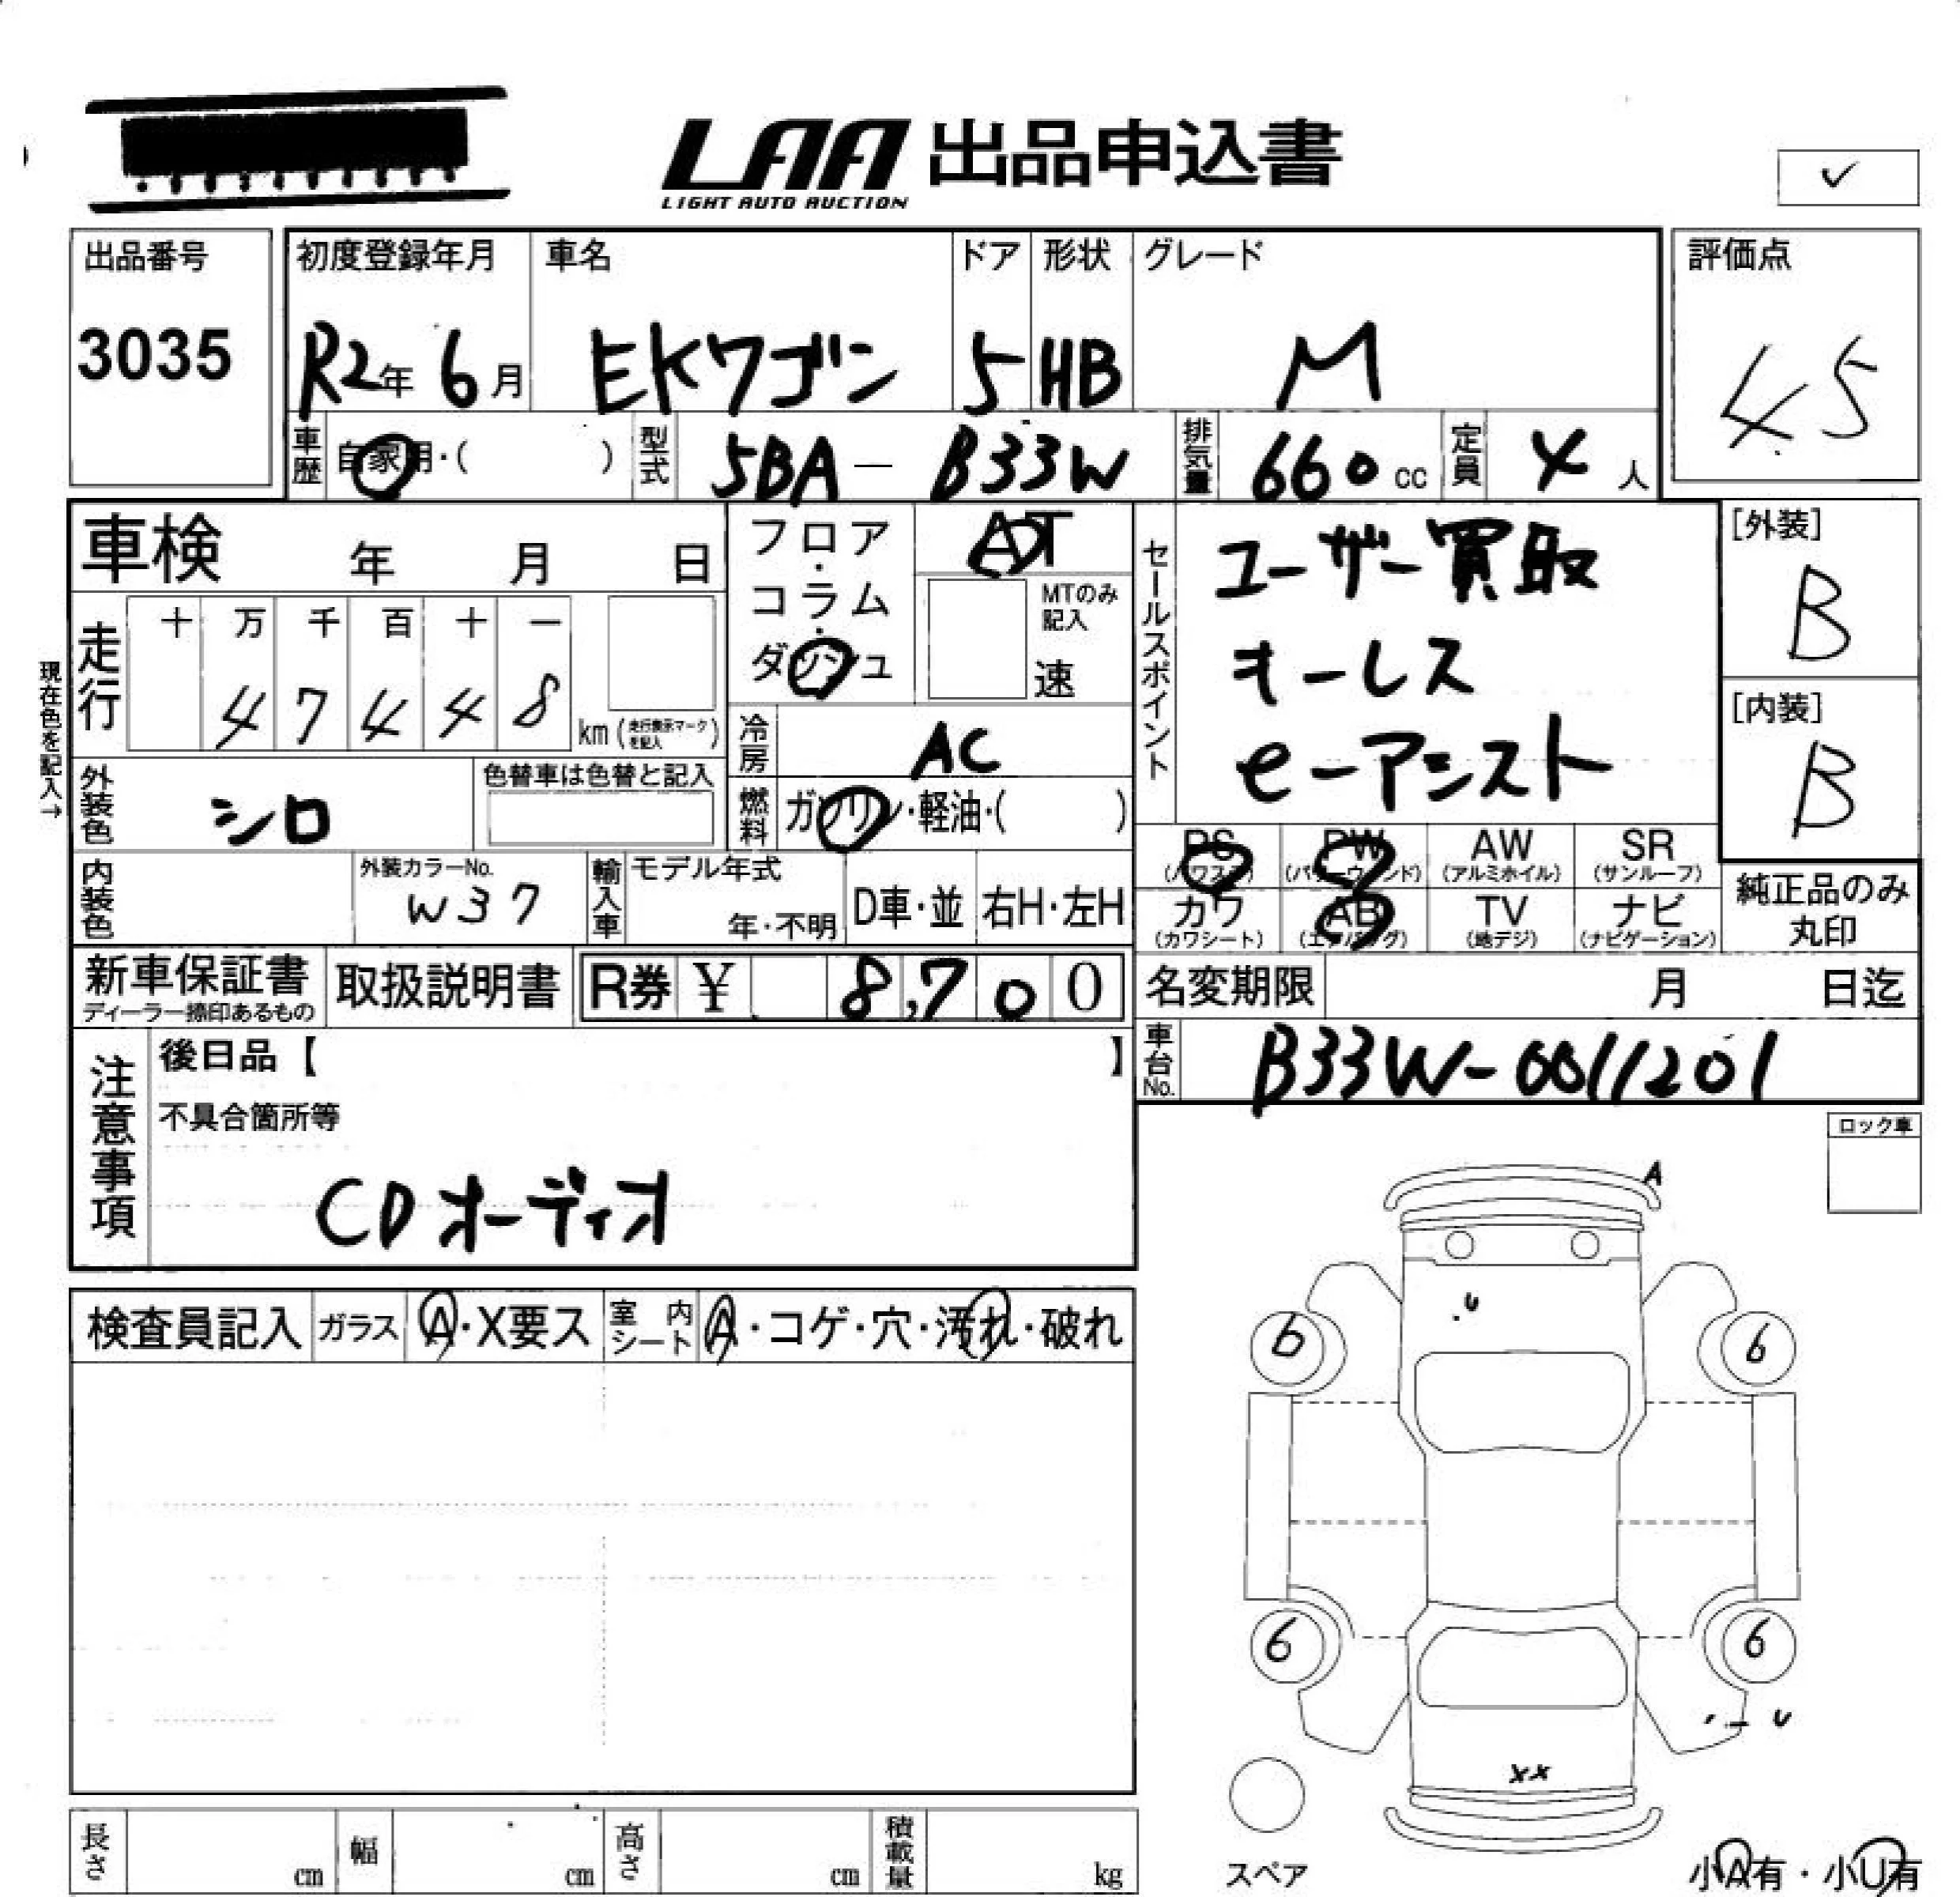 LAA 出品申込書
LIGHT AUTO AUCTION
✓
出品番号
3035
初度登録年月
R2年 6月
車名
EKワゴン
ドア
5
形状
HB
グレード
M
評価点
45
車歴
自家用・( )
型式
5BA - B33W
排気量
660 cc
定員
4 人
車検 年 月 日
フロア・コラム・ダッシュ
AT
MTのみ記入
速
セールスポイント
ユーザー買取
キーレス
e-アシスト
[外装]
B
[内装]
B
現在色を記入→
走行
十 万 千 百 十 一
4 7 4 4 8
km (走行表示マークを記入)
冷房
AC
外装色
シロ
色替車は色替と記入
燃料
ガソリン・軽油・( )
内装色
外装カラーNo.
W37
輸入車
モデル年式
年・不明
D車・並
右H・左H
PS (パワステ)
PW (パワーウィンド)
AW (アルミホイル)
SR (サンルーフ)
カワ (カワシート)
AB (エアバッグ)
TV (地デジ)
ナビ (ナビゲーション)
純正品のみ
丸印
新車保証書
ディーラー捺印あるもの
取扱説明書
R券 ¥ 8,700
名変期限 月 日迄
車台No.
B33W-0011201
注意事項
後日品【 】
不具合箇所等
CDオーディオ
ロック車
検査員記入
ガラス
A・X要ス
室内シート
A・コゲ・穴・汚れ・破れ
A
U
6 6
6 6
U
XX
スペア
小A有・小U有
長さ cm
幅 cm
高さ cm
積載量 kg